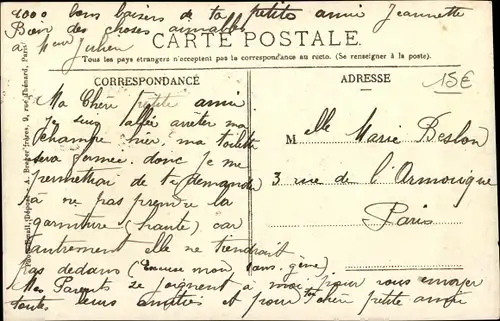 1000 bons baisers de ta petite amie Jeannette
Bien des choses aimables
à Mme Julien
CARTE POSTALE.
Tous les pays étrangers n'acceptent pas la correspondance au recto. (Se renseigner à la poste).
CORRESPONDANCE
Ma Chère petite amie
Je suis allée arrêter ma
hier, ma toilette
sera donc je me
permettrai de te demander
à ne pas prendre la
garniture (haute) car
autrement elle ne tiendrait
pas dedans (Excuse mon sans gêne)
Mes Parents se joignent à moi pour vous envoyer
toutes leurs amitiés et pour toi chère petite amie
ADRESSE
15€
Melle Marie Beslon
3 rue de l'Armorique
Paris
A. Breger frères, 9, rue Thénard, Paris